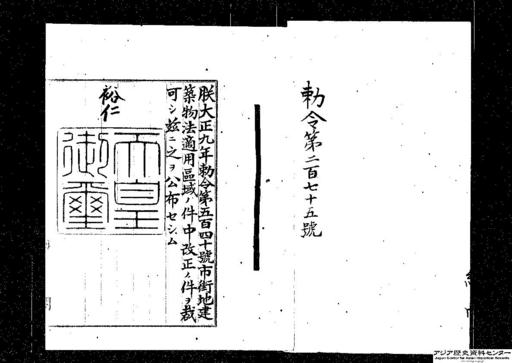 勅令第二百七十五號
朕大正九年勅令第五百四十號市街地建
築物法適用區域ノ件中改正ノ件ヲ裁
可シ玆ニ之ヲ公布セシム
裕仁
天皇
御璽
アジア歴史資料センター
Japan Center for Asian Historical Records